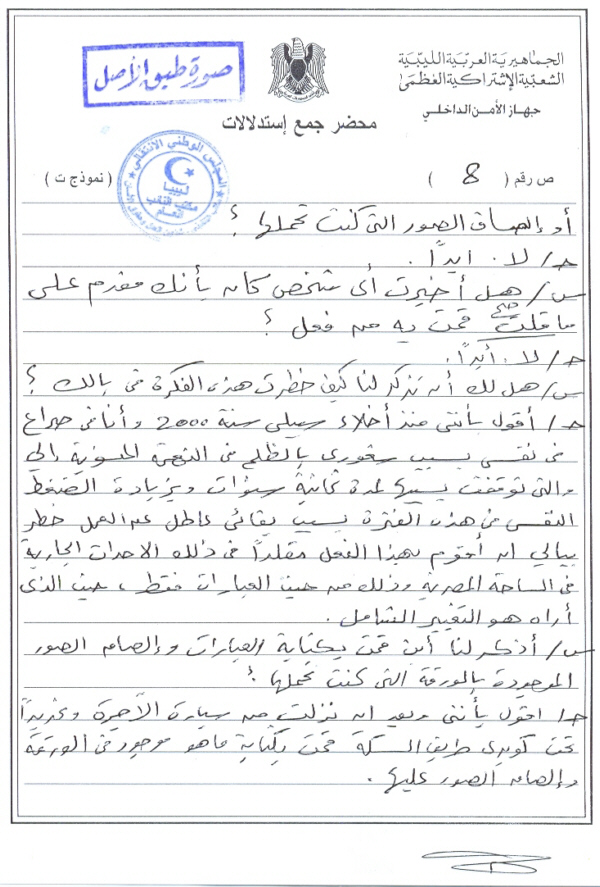 الجماهيرية العربية الليبية
الشعبية الإشتراكية العظمى
جهاز الأمن الداخلي
صورة طبق الأصل
محضر جمع إستدلالات
ص رقم ( 8 ) ( نموذج ت )
المجلس الوطني الانتقالي
ليبيا
مكتب النائب العام
أو إلصاق الصور التي كنت تحملها ؟
جـ/ لا . ابداً .
س/ هل أخبرت أي شخص كان بأنك مقدم على
ما قلت صح قمت به من فعل ؟
جـ/ لا . أبداً .
س/ هل لك أن تذكر لنا كيف خطرت هذه الفكرة في بالك ؟
جـ/ أقول بأنني منذ أخلاء سبيلي سنة 2000 وأنا في صراع
في نفسي بسبب شعوري بالظلم في التهمة المنسوبة إلي
والتي توقفت بسببها لمدة ثمانية سنوات وبزيادة الضغط
النفسي في هذه الفترة بسبب بقائي عاطل عن العمل خطر
ببالي ان أقوم بهذا الفعل مقلداً في ذلك الاحداث الجارية
في الساحة المصرية وذلك من حيث العبارات فقط ، حيث الذي
أراه هو التغيير الشامل .
س/ أذكر لنا أين قمت بكتابة العبارات وإلصاق الصور
الموجودة بالورقة التي كنت تحملها ؟
جـ/ اقول بأنني وبعد ان نزلت من سيارة الأجرة وتحديداً
تحت كوبري طريق السكة قمت بكتابة ماهو موجود في الورقة
وإلصاق الصور عليها .